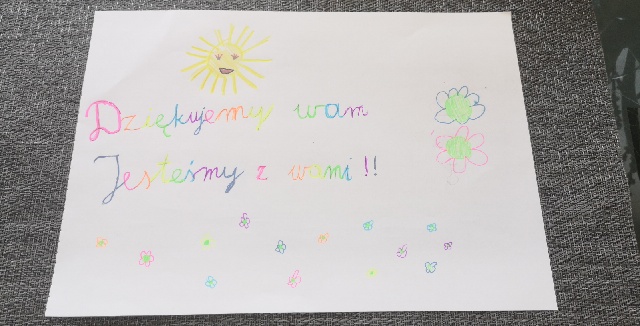 Dziękujemy wam
Jesteśmy z wami !!